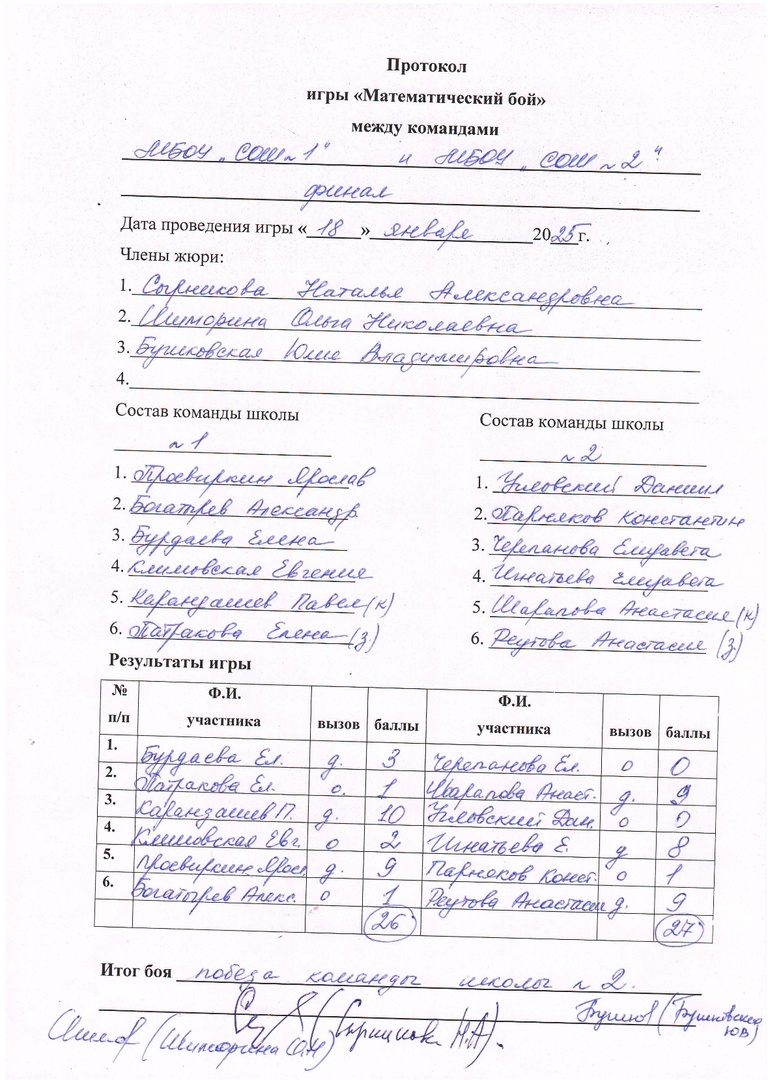 Протокол
игры «Математический бой»
между командами
МБОУ „СОШ №1" и МБОУ „СОШ №2"
финал
Дата проведения игры «18» января 2025г.
Члены жюри:
1. Сырникова Наталья Александровна
2. Шиморина Ольга Николаевна
3. Бушковская Юлия Владимировна
4.
Состав команды школы Состав команды школы
№1 №2
1. Просвиркин Ярослав 1. Угловский Даниил
2. Богатырев Александр. 2. Парняков Константин
3. Бурдаева Елена 3. Черепанова Елизавета
4. Климовская Евгения 4. Игнатьева Елизавета
5. Карандашев Павел (к) 5. Шарапова Анастасия (к)
6. Патракова Елена (з) 6. Реутова Анастасия (з)
Результаты игры
№ п/п Ф.И. участника вызов баллы Ф.И. участника вызов баллы
1. Бурдаева Ел. д. 3 Черепанова Ел. о 0
2. Патракова Ел. о. 1 Шарапова Анаст. д. 9
3. Карандашев П. д. 10 Угловский Дан. о 0
4. Климовская Евг. о 2 Игнатьева Е. д 8
5. Просвиркин Яросл. д. 9 Парняков Конст. о 1
6. Богатырев Алекс. о 1 Реутова Анастасия д. 9
26 27
Итог боя победа команды школы №2.
(Бушковская ЮВ)
(Сырникова Н.А).
(Шиморина О.Н)